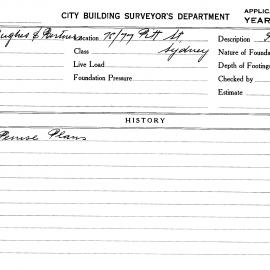 CITY BUILDING SURVEYOR'S DEPARTMENT
APPLIC
YEAR
ughes & Partners Location 75/77 Pitt St. Description
Class Sydney Nature of Founda
Live Load Depth of Footing
Foundation Pressure Checked by
Estimate
HISTORY
Plans